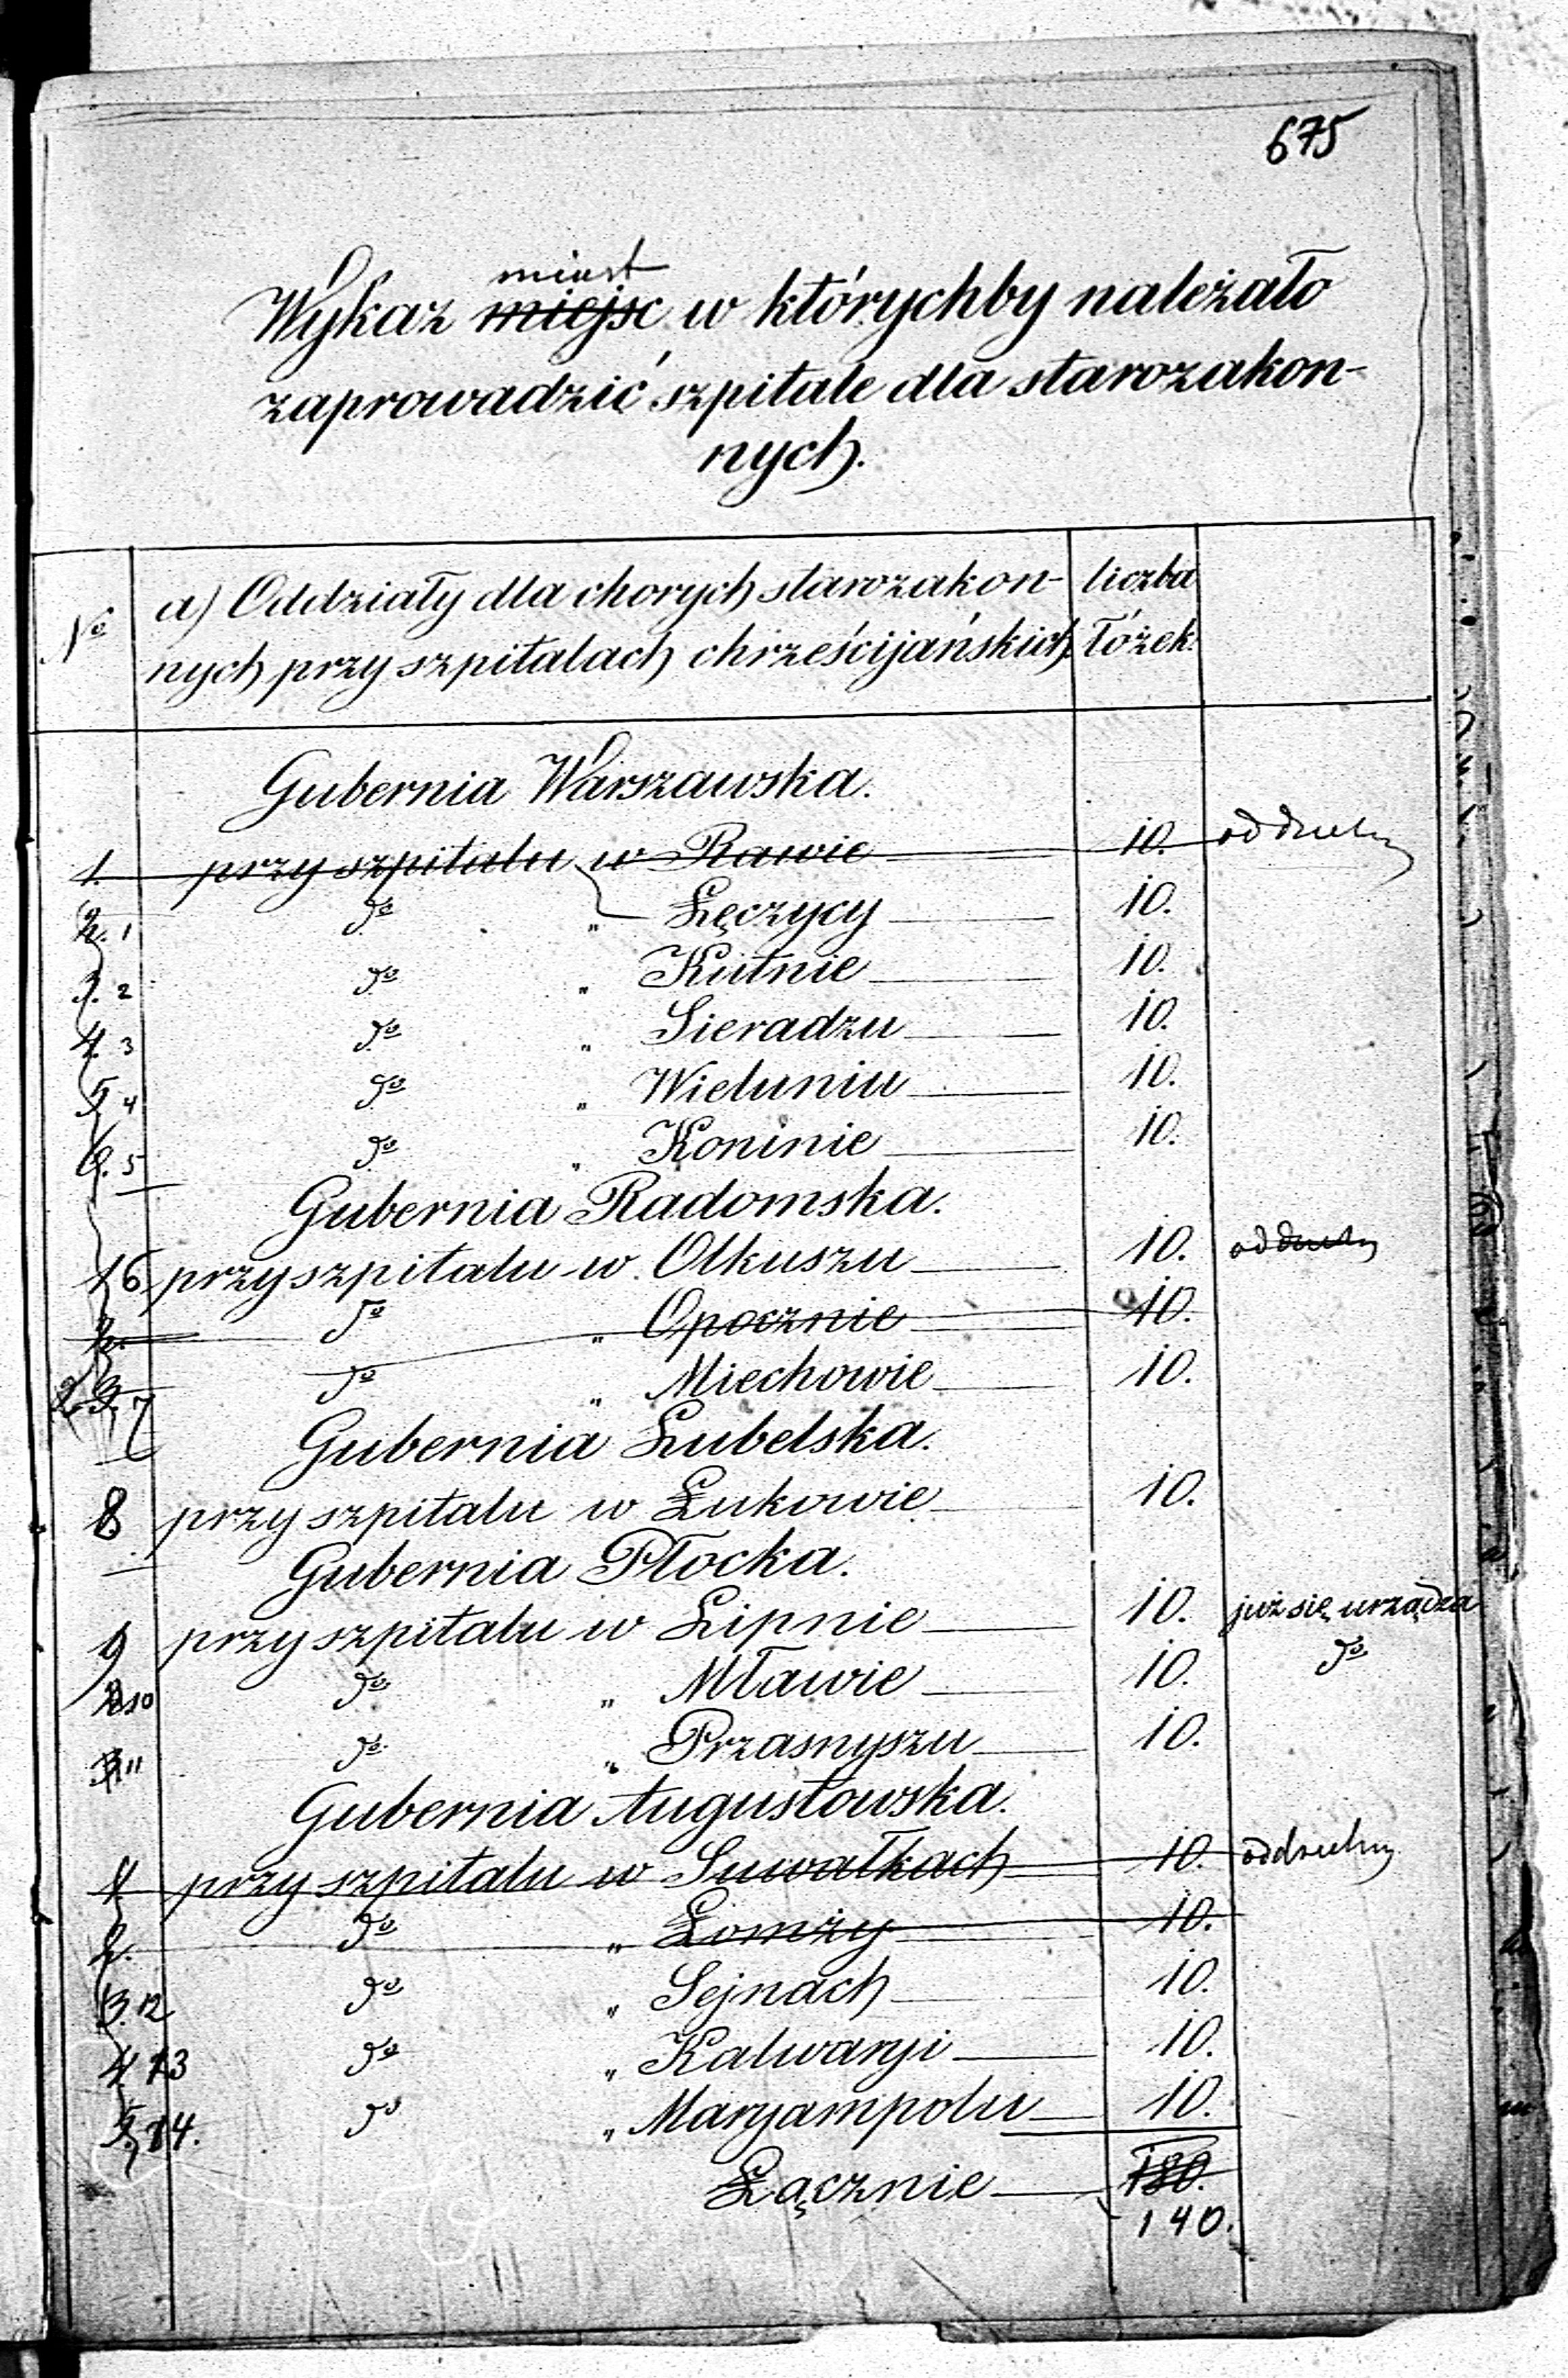 675
miast
Wykaz miejsc w którychby należało
zaprowadzić szpitale dla starozakon-
nych.
No a) Oddziały dla chorych starozakon- liczba
nych przy szpitalach chrześcijańskich. łóżek.
Gubernia Warszawska.
1. przy szpitalu w Rawie 10. oddzielny
2. 1 do " Łęczycy 10.
3. 2 do " Kutnie 10.
4. 3 do " Sieradzu 10.
5 4 do " Wieluniu 10.
6. 5 do " Koninie 10.
Gubernia Radomska.
1 6 przy szpitalu w Olkuszu 10. oddzielny
2. do " Opocznie 10.
2 3. 7 do " Miechowie 10.
Gubernia Lubelska.
8 przy szpitalu w Łukowie 10.
Gubernia Płocka.
9 przy szpitalu w Lipnie 10. już się urządza
2 10 do " Mławie 10. do
3 11 do " Przasnyszu 10.
Gubernia Augustowska.
1 przy szpitalu w Suwałkach 10. oddzielny
2. do " Łomży 10.
3. 12 do " Sejnach 10.
4 13 do " Kalwaryi 10.
5. 14. do " Maryampolu 10.
Łącznie 180.
140.